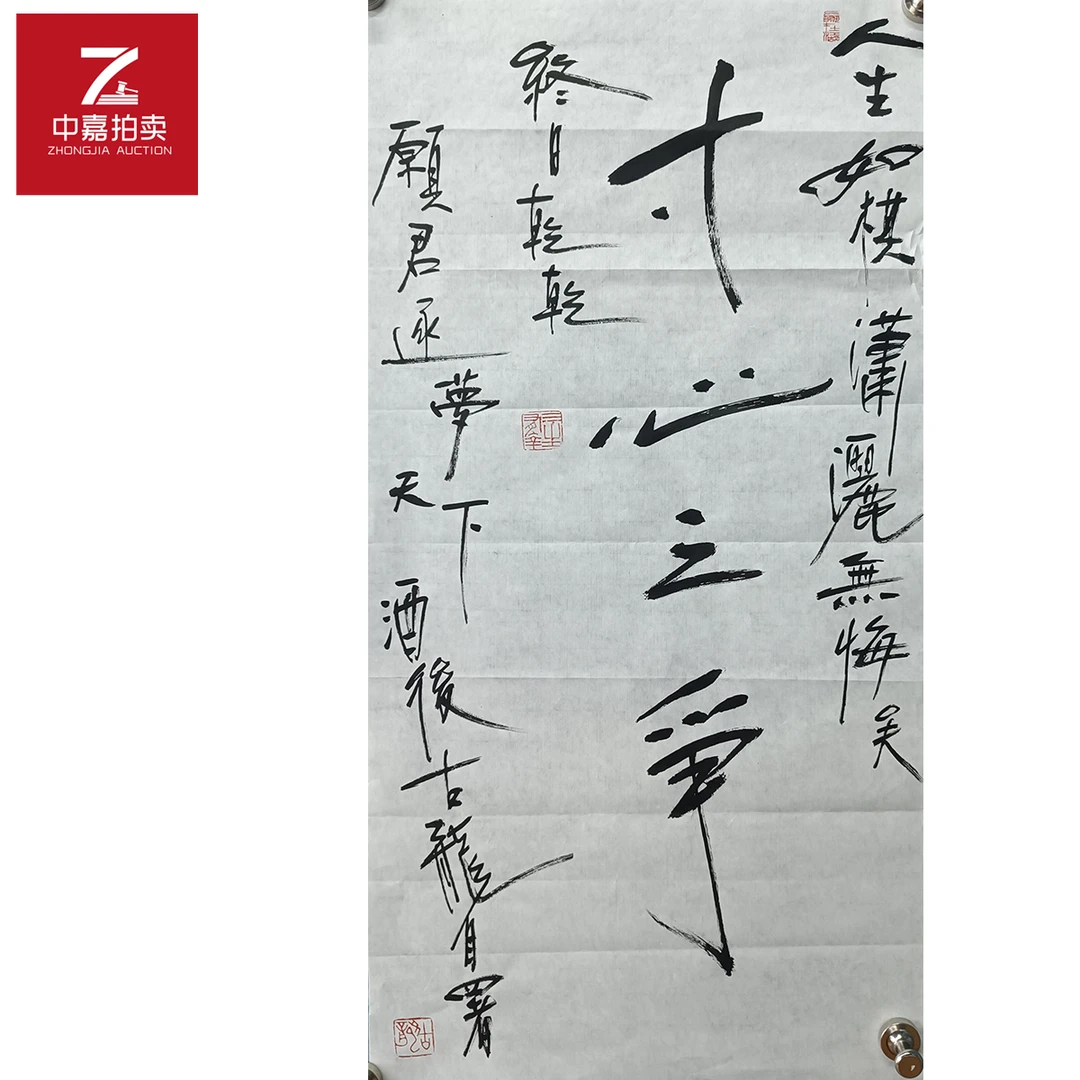 中嘉拍卖
ZHONGJIA AUCTION
人生如棋瀟灑無悔矣
寸心之爭
終日乾乾
願君逐夢天下酒後古龍自署